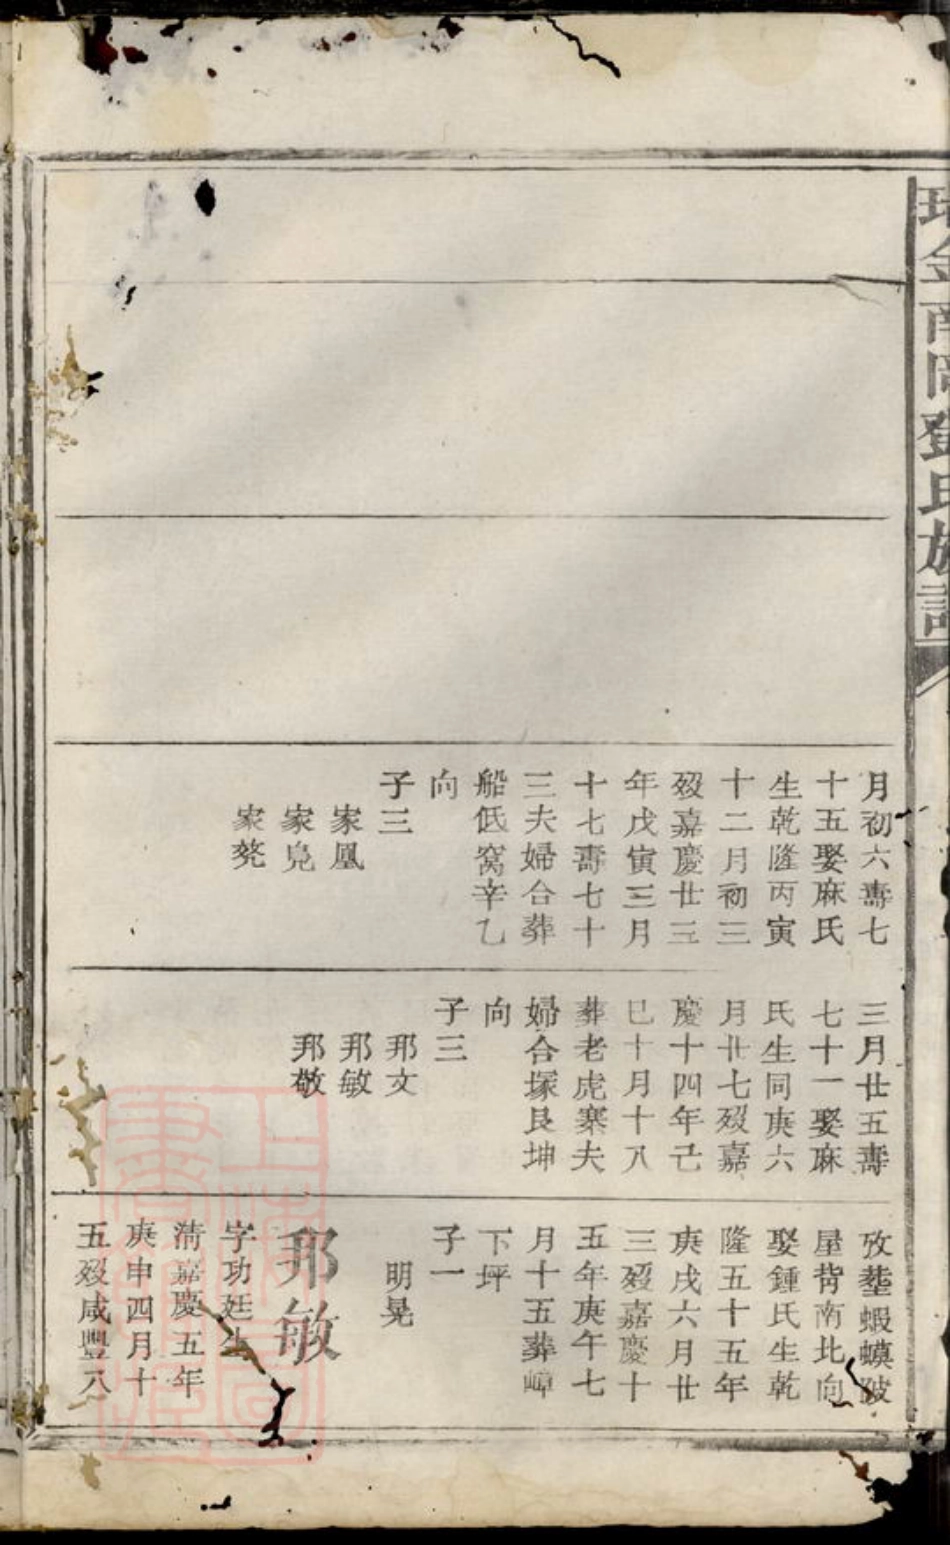 瑞金南岡鄧氏族譜
月初六壽七
十五娶麻氏
生乾隆丙寅
十二月初三
歿嘉慶廿三
年戊寅三月
十七壽七十
三夫婦合葬
船低窩辛乙
向
子三
家鳳
家凫
家凳
三月廿五壽
七十一娶麻
氏生同庚六
月廿七歿嘉
慶十四年己
巳十月十八
葬老虎寨夫
婦合塚艮坤
向
子三
邦文
邦敏
邦敬
歿塟蝦蟆陂
屋背南北向
娶鍾氏生乾
隆五十五年
庚戌六月廿
三歿嘉慶十
五年庚午七
月十五葬嶂
下坪
子一
明晃
邦敏
字功廷生
清嘉慶五年
庚申四月十
五歿咸豐八
上海圖書館藏